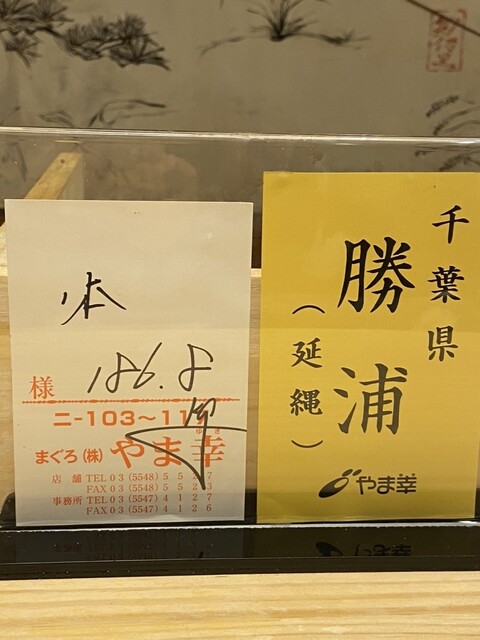 様
186.8
ニ-103～11
まぐろ(株) やま幸
ゆき
店 舗 TEL 03 (5548) 5 5 2 7
FAX 03 (5548) 5 5 2 3
事務所 TEL 03 (5547) 4 1 2 7
FAX 03 (5547) 4 1 2 6
千葉県
勝浦
(延縄)
やま幸